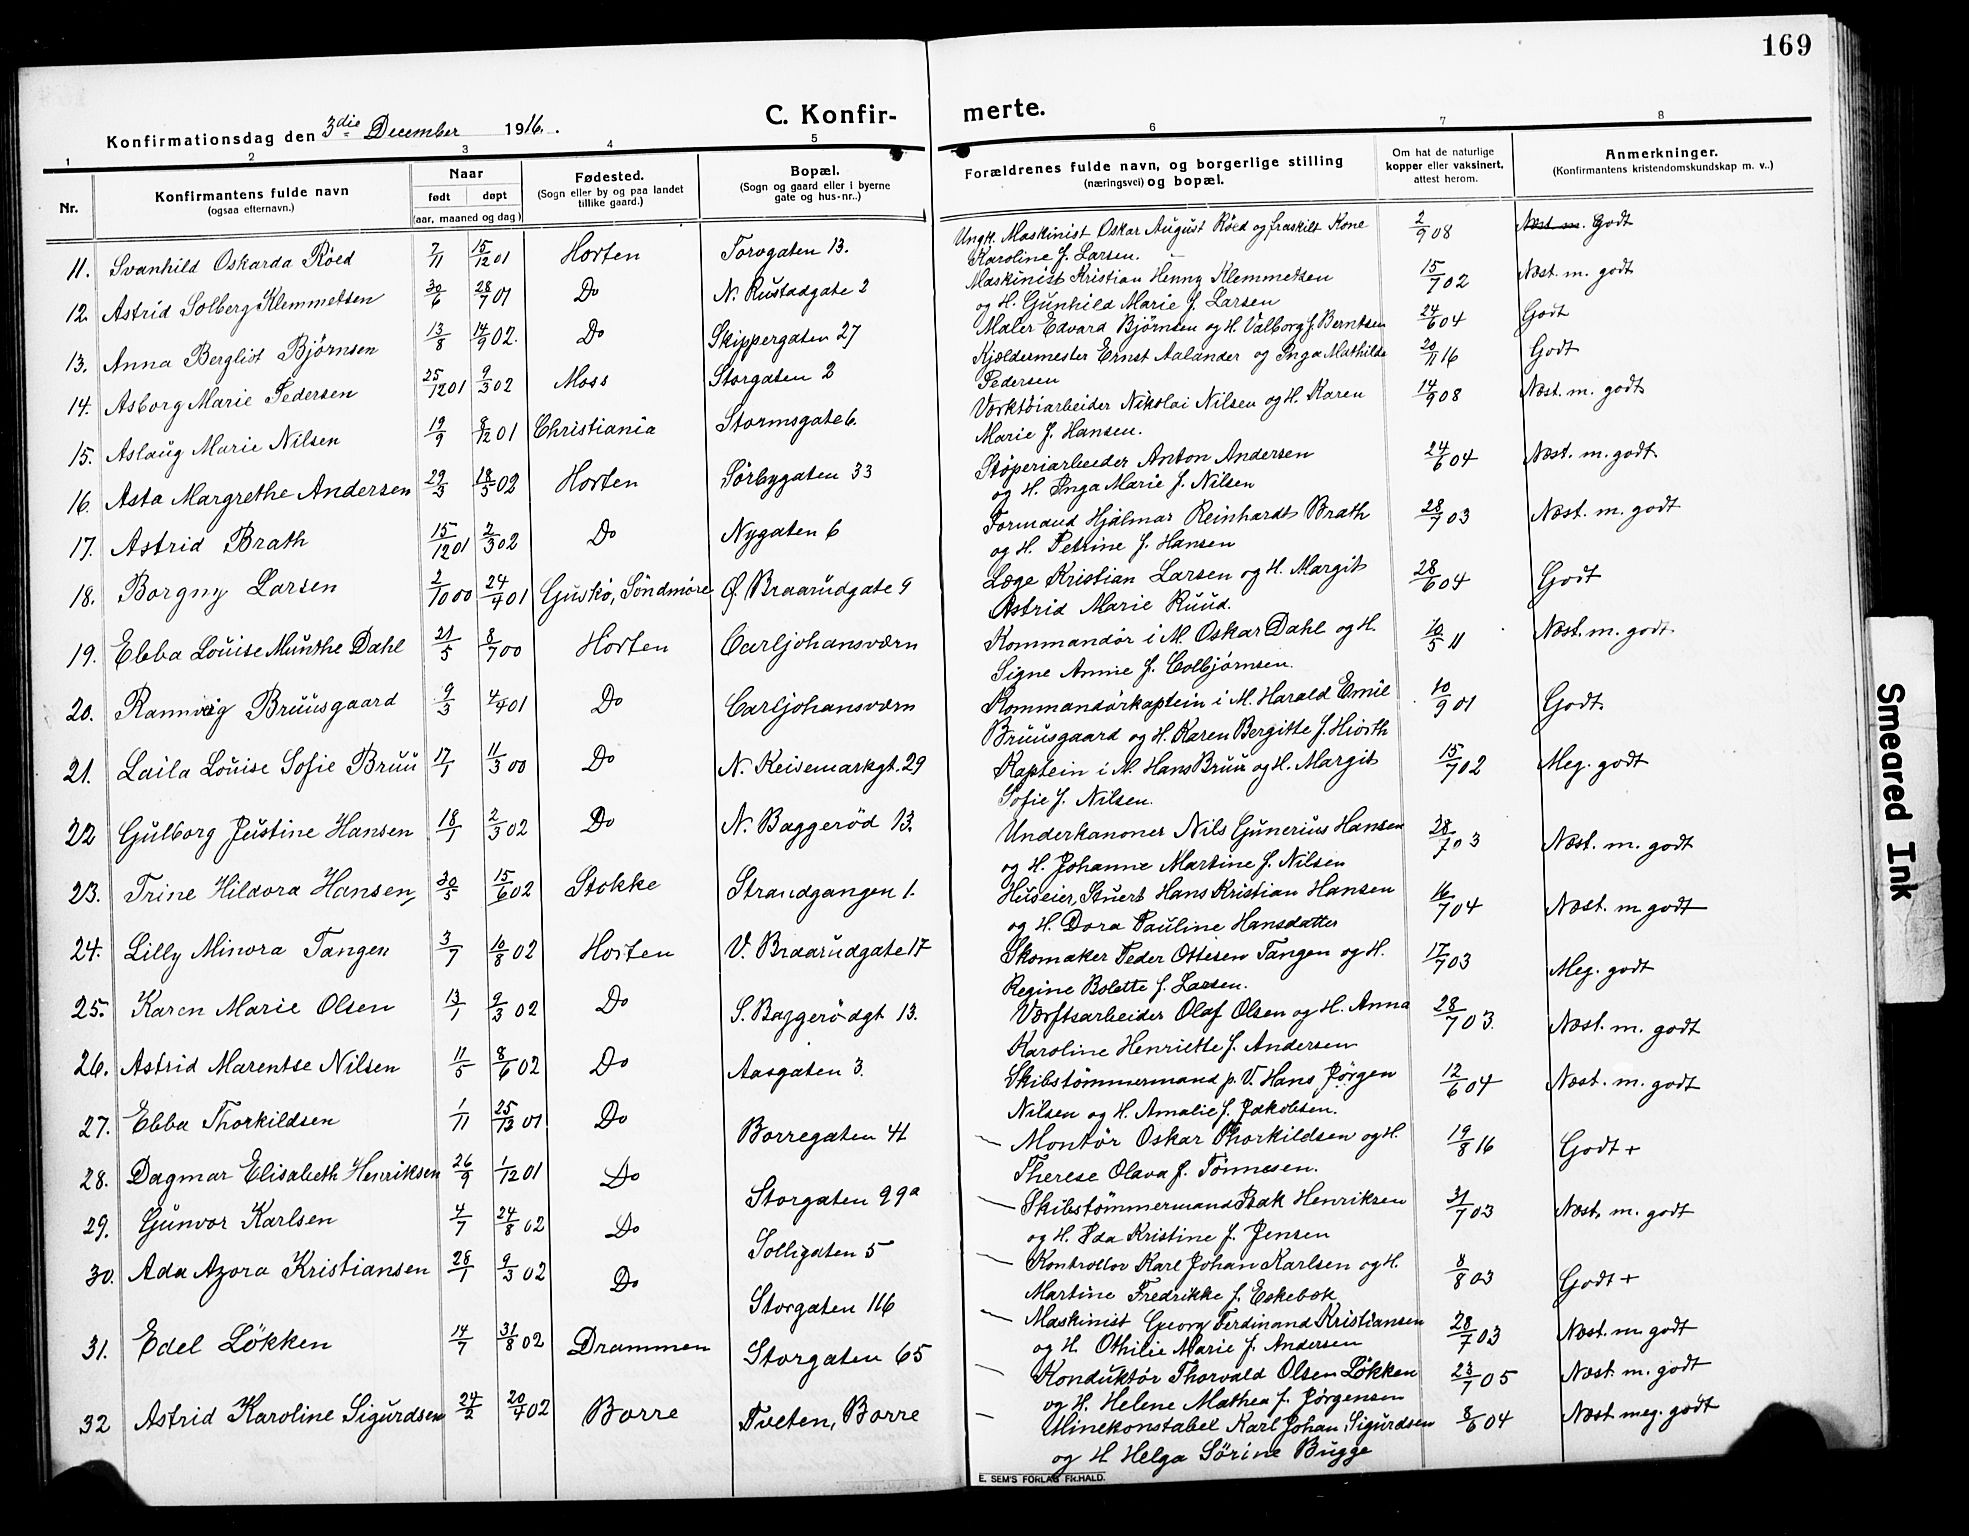 169
Konfirmationsdag den 3die December 1916.
C. Konfir-
merte.
1 2 3 4 5 6 7 8
Nr.
Konfirmantens fulde navn
(ogsaa efternavn.)
Naar
født døpt
(aar, maaned og dag)
Fødested.
(Sogn eller by og paa landet
tillike gaard.)
Bopæl.
(Sogn og gaard eller i byerne
gate og hus-nr..)
Forældrenes fulde navn, og borgerlige stilling
(næringsvei) og bopæl.
Om hat de naturlige
kopper eller vaksinert,
attest herom.
Anmerkninger.
(Konfirmantens kristendomskundskap m. v..)
11. Svanhild Oskarda Röed 7/11 15/12 01 Horten Torvgaten 13. Ungk. Maskinist Oskar August Röed og fraskilt Kone 2/9 08 Næst m. Godt
Karoline f. Larsen.
12. Astrid Solberg Klemmetsen 30/6 28/7 01 Do N. Rustadgate 2 Maskinist Kristian Henny Klemmetsen 15/7 02 Næst. m. godt
og H. Gunhild Marie f. Larsen
13. Anna Bergliot Bjørnsen 13/8 14/9 02. Do Skippergaten 27 Maler Edvard Bjørnsen og H. Valborg f. Berntsen 24/6 04 Godt
14. Asborg Marie Pedersen 25/12 01 9/3 02 Moss Storgaten 2 Kjældermester Ernst Aalander og Inga Mathilde 20/11 16 Godt
Pedersen
15. Aslaug Marie Nilsen 19/9 8/12 01 Christiania Stormsgate 6. Værktöiarbeider Nikolai Nilsen og H. Karen 14/9 08 Næst. m. godt
Marie f. Hansen.
16. Asta Margrethe Andersen 29/3 18/5 02 Horten Sörbygaten 33 Stöperiarbeider Anton Andersen 24/6 04 Næst. m. godt
og H. Inga Marie f. Nilsen
17. Astrid Brath 15/12 01 2/3 02 Do Nygaten 6 Formand Hjalmar Reinhardt Brath 28/7 03 Næst. m. godt
og H. Petrine f. Hansen
18. Borgny Larsen 2/10 00 24/4 01 Guskö, Söndmöre Ø. Braarudgate 9 Læge Kristian Larsen og H. Margit 28/6 04 Godt
Astrid Marie Ruud.
19. Ebba Louise Munthe Dahl 21/5 8/7 00 Horten Carljohansværn Kommandör i M. Oskar Dahl og H. 10/5 11 Næst. m. godt
Signe Annie f. Colbjörnsen.
20. Rannveig Bruusgaard 9/3 4/4 01 Do Carljohansværn Kommandörkaptein i M. Harald Emil 10/9 01 Godt.
Bruusgaard og H. Karen Bergitte f. Hiorth
21. Laila Louise Sofie Bruu 17/1 11/3 00 Do N. Keisemarkgt. 29 Kaptein i M. Hans Bruu og H. Margit 15/7 02 Meg. godt
Sofie f. Nilsen.
22 Gulborg Justine Hansen 18/1 2/3 02 Do N. Baggeröd 13. Underkanoner Nils Gunerius Hansen 28/7 03 Næst. m. godt
og H. Johanne Martine f. Nilsen
23. Trine Hildora Hansen, 30/5 15/6 02 Stokke Strandgangen 1. Huseier, Stuert Hans Kristian Hansen 16/7 04 Næst. m godt
og H. Dora Pauline Hansdatter
24. Lilly Minora Tangen 3/7 10/8 02 Horten V. Braarudgate 17 Skomaker Peder Ottesen Tangen og H. 17/7 03 Meg. godt
Regine Bolette f. Larsen.
25. Karen Marie Olsen 13/1 9/3 02 Do S. Baggerödgt 13. Værftsarbeider Olaf Olsen og H. Anna 28/7 03. Næst. m. godt
Karoline Henriette f. Andersen
26. Astrid Marentse Nilsen 11/5 8/6 02 Do Aasgaten 3. Skibstömmermand p. V. Hans Jörgen 12/6 04 Næst. m. godt
Nilsen og H. Amalie f. Jakobsen.
27. Ebba Thorkildsen 1/11 25/12 01 Do Borregaten 41 Montör Oskar Thorkildsen og H. 19/8 16 Godt +
Therese Olava f. Tönnesen.
28. Dagmar Elisabeth Henriksen 26/9 1/12 01 Do Storgaten 99a Skibstömmermand Isak Henriksen 31/7 03 Næst. m. godt
og H. Ida Kristine f. Jensen
29. Gunvor Karlsen 4/7 24/8 02 Do Solligaten 5 Kontrollör Karl Johan Karlsen og H. 8/8 03 Godt +
Martine Fredrikke f. Eskebæk
30. Ada Azora Kristiansen 28/1 9/3 02 Do Storgaten 116 Maskinist Georg Ferdinand Kristiansen 28/7 03 Næst. m. godt
og H. Othilie Marie f. Andersen
31. Edel Lökken 14/7 31/8 02 Drammen Storgaten 65 Konduktör Thorvald Olsen Lökken 23/7 05 Næst. m. godt
og H. Helene Mathea f. Jörgensen
32 Astrid Karoline Sigurdsen 24/2 20/4 02 Borre Tveten, Borre Minekonstabel Karl Johan Sigurdsen 8/6 04 Næst meg. godt
og H Helga Sörine Bugge
E. SEM'S FORLAG FR.HALD.
Smeared Ink